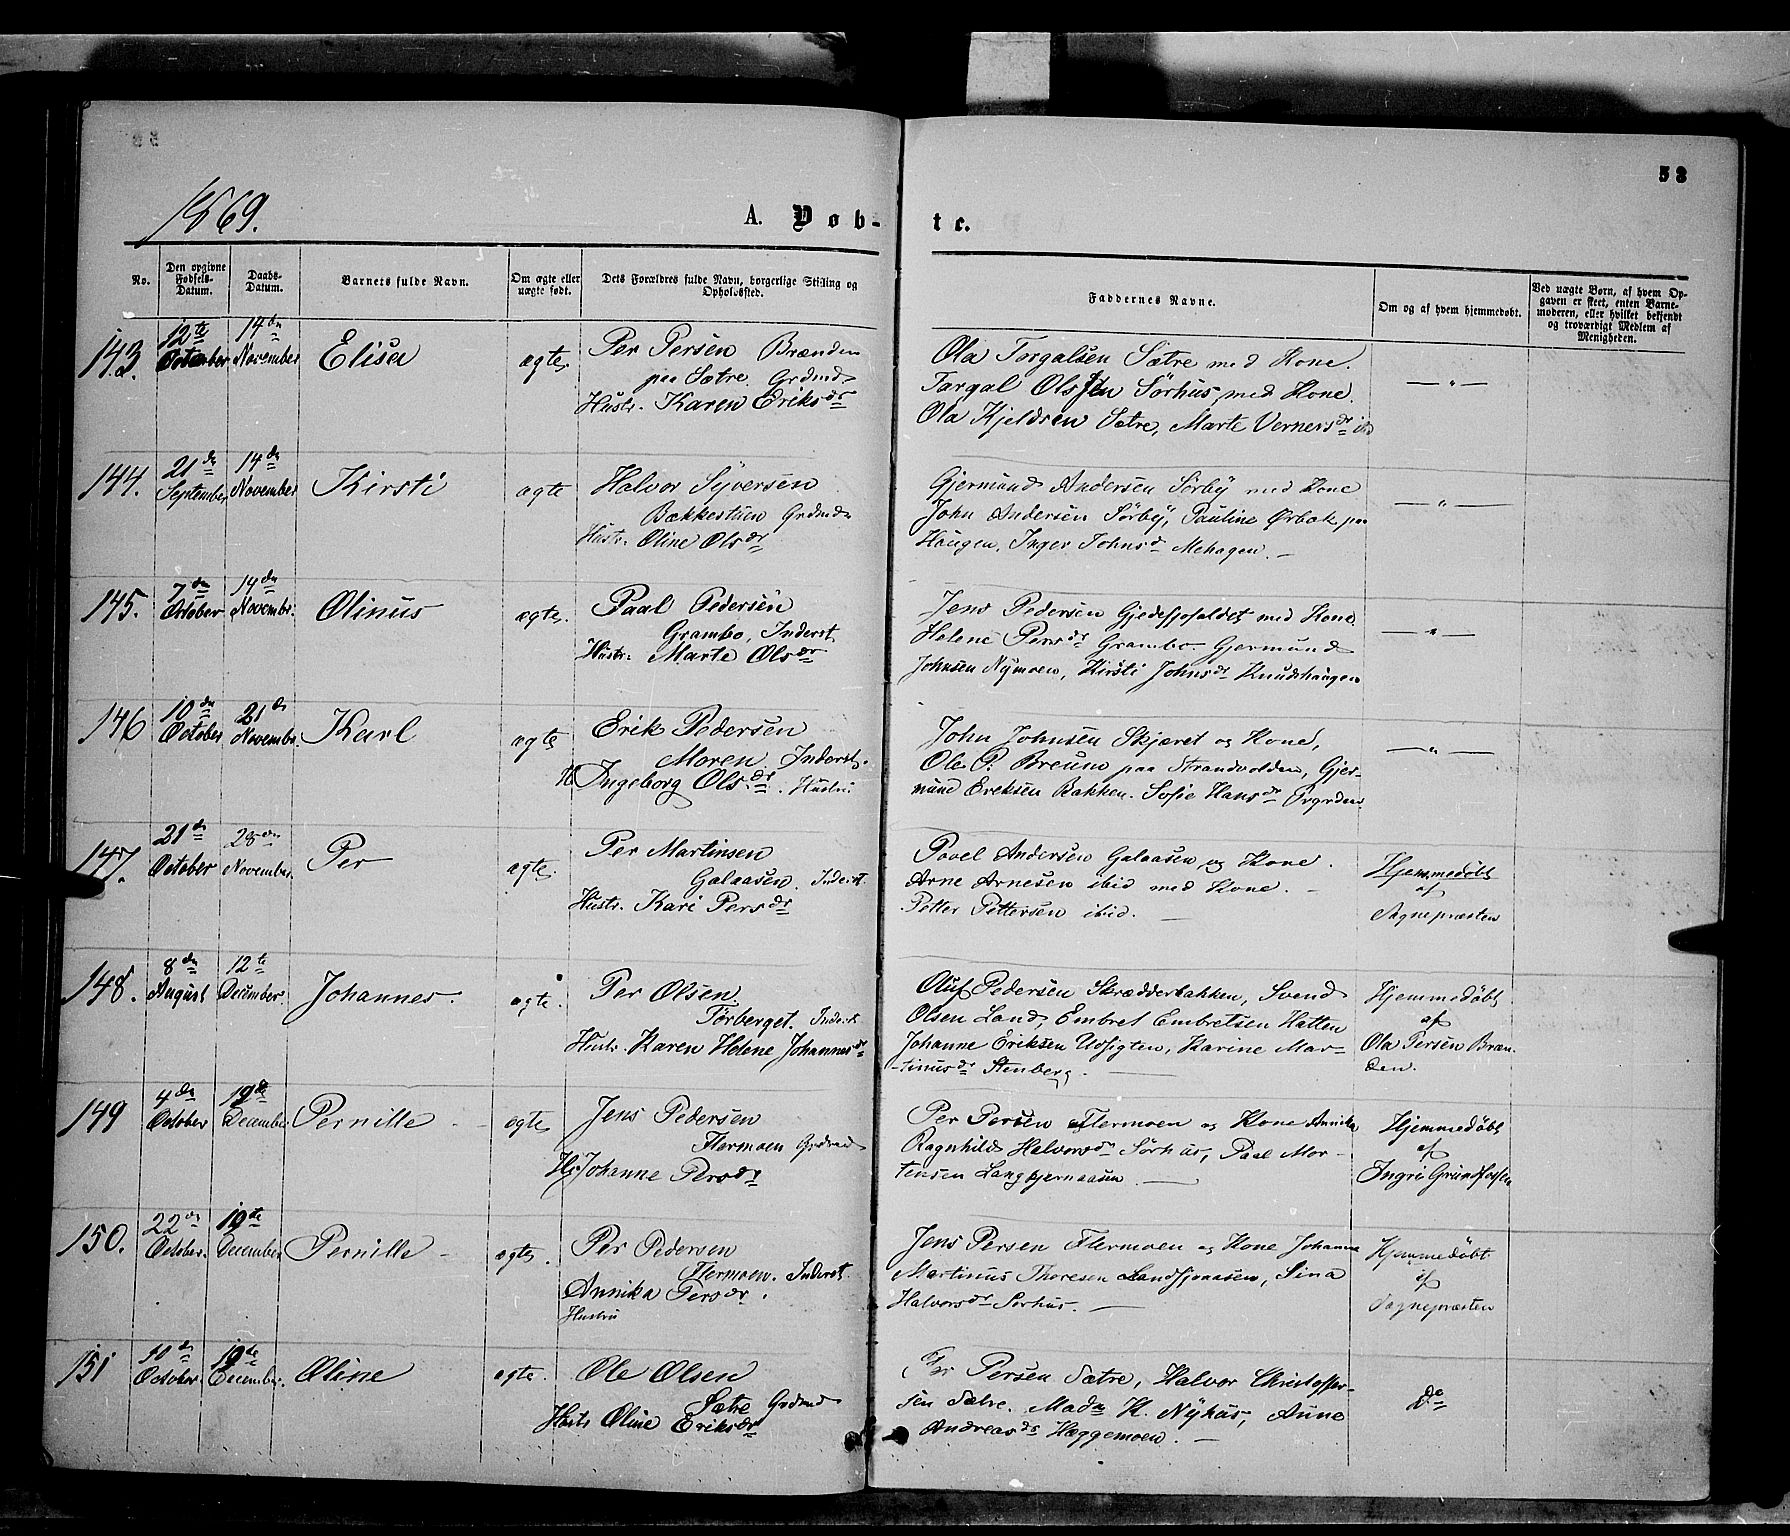 53
1869.
A. Døb-
te.
No.
Den opgivne Fødsels-Datum.
Daabs-Datum.
Barnets fulde Navn.
Om ægte eller uægte født.
Dets Forældres fulde Navn, borgerlige Stilling og Opholdssted.
Faddernes Navne.
Om og af hvem hjemmedøbt.
Ved uægte Børn, af hvem Op-
gaven er skeet, enten Barne-
moderen, eller hvilket bekjendt
og troværdigt Medlem af
Menigheden.
143. 12te October 14dn November Elisa ægte
Per Persen Brænden
paa Sætre. Grdmd
Hustr. Karen Eriksdr
Ola Torgalsen Sætre med Kone.
Targal Olsen Sörhus med Kone.
Ola Kjeldsen Sætre, Marte Vernersdr
— " —
144. 21dn September 14dn November Kirsti ægte
Halvor Syversen
Bækkestuen Grdmd
Hustr. Oline Olsdr
Gjermund Andersen Sörby med Kone
John Andersen Sörby, Pauline Ørbak paa
Haugen, Inger Johnsdr Mehagen. —
— " —
145. 7dn October 14dn Novembr. Olinus ægte.
Paal Pedersen
Grambo, Inderst
Hustr. Marte Olsdr
Jens Pedersen med Kone.
Helene Persdr Grambo Gjermund
Johnsen Nymoen, Kirsti Johnsdr Knudshaugen
— " —
146 10dn October 21dn Novembr. Karl ægte
Erik Pedersen
Moren Inderst.
Ingeborg Olsdr. Hustru
John Johnsen Skjæret og Kone,
Ole P. Breum paa Strandvolden, Gjer-
mund Eriksen Bakken. Sofie Hansdr
— " —
147. 21dn October 28dn November Per ægte.
Per Martinsen
Galaasen. Inderst.
Hustr. Kari Persdr
Povel Andersen Galaasen og Kone.
Arne Arnesen ibid med Kone. —
Petter Pettersen ibid. —
Hjemmedöbt
af
Sognepræsten
148. 8dn August 12te December. Johannes. ægte.
Per Olsen.
Törberget. Inderst
Hustr. Karen Helene Johannesdr
Oluf Pedersen Skrædderbakken, Svend
Olsen Land, Embret Embretsen Hatten
Johanne Eriksen Udsigten, Karine Mar-
tinusdr Stenberg. —
Hjemmedöbt
af
Ola Persen Bræn-
den.
149 4dn October 19de December Pernille ægte
Jens Pedersen
Flermoen Grdmd
H. Johanne Persdr
Per Persen Flermoen og Kone Annika
Ragnhild Halvorsdr Sörhus, Paal Mor-
tensen Langkjernaasen —
Hjemmedöbt
af
Ingri Grundfossen
150. 22dn October. 19de December Pernille ægte.
Per Pedersen
Flermoen. Inderst.
Annika Persdr.
Hustru
Jens Persen Flermoen og Kone Johanne
Martinus Thoresen Landsjoaasen, Sina
Halvorsdr Sörhus. —
Hjemmedöbt
af
Sognepræsten
151 10dn October 19de December. Oline ægte.
Ole Olsen
Sætre Grdmd
Hustr. Oline Eriksdr
Per Persen Sætre, Halvor Christoffer-
sen Sætre. Madm K. Nyhus, Anne
Andreasdr Hæggemoen. —
Do